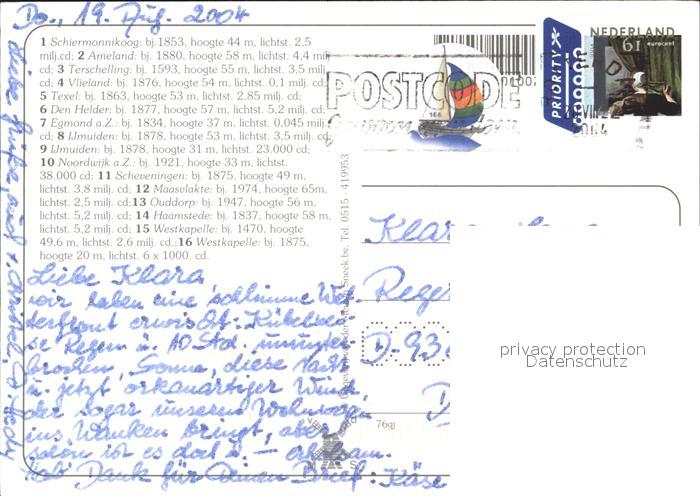 Do., 19. Aug. 2004
1 Schiermonnikoog: bj.1853, hoogte 44 m, lichtst. 2,5
milj.cd; 2 Ameland: bj. 1880, hoogte 58 m, lichtst. 4,4 milj.
cd; 3 Terschelling: bj. 1593, hoogte 55 m, lichtst. 3,5 milj.
cd; 4 Vlieland: bj. 1876, hoogte 54 m, lichtst. 0,1 milj. cd;
5 Texel: bj. 1863, hoogte 53 m, lichtst. 2.85 milj. cd;
6 Den Helder: bj. 1877, hoogte 57 m, lichtst. 5,2 milj. cd;
7 Egmond a.Z.: bj. 1834, hoogte 37 m, lichtst. 0,045 milj.
cd; 8 IJmuiden: bj. 1878, hoogte 53 m, lichtst. 3,5 milj. cd;
9 IJmuiden: bj. 1878, hoogte 31 m, lichtst. 23.000 cd;
10 Noordwijk a.Z.: bj. 1921, hoogte 33 m, lichtst.
38.000 cd; 11 Scheveningen: bj. 1875, hoogte 49 m,
lichtst. 3,8 milj. cd; 12 Maasvlakte: bj. 1974, hoogte 65m,
lichtst. 2,5 milj. cd; 13 Ouddorp: bj. 1947, hoogte 56 m,
lichtst. 5,2 milj. cd; 14 Haamstede: bj. 1837, hoogte 58 m,
lichtst. 5,2 milj. cd; 15 Westkapelle: bj. 1470, hoogte
49,6 m, lichtst. 2,6 milj. cd; 16 Westkapelle: bj. 1875,
hoogte 20 m, lichtst. 6 x 1000. cd.
Liebe Klara
wir haben eine schlimme Wet-
terfront erwischt. Kübelwei-
se Regen u. 10 Std. ununter-
brochen, Sonne, diese Nacht
u. jetzt orkanartiger Wind,
der sogar unseren Wohnwagen
ins Wanken bringt, aber
schön ist es doch u. – erholsam.
Hab Dank für Deinen Brief: Käse
Liebe Grüße, auch v.
Sneek bv. Tel. 0515 - 419953
NEDERLAND
61 eurocent
PRIORITY
POSTCODE
2004
Klara
Rege
D-93
D
76gj
privacy protection
Datenschutz